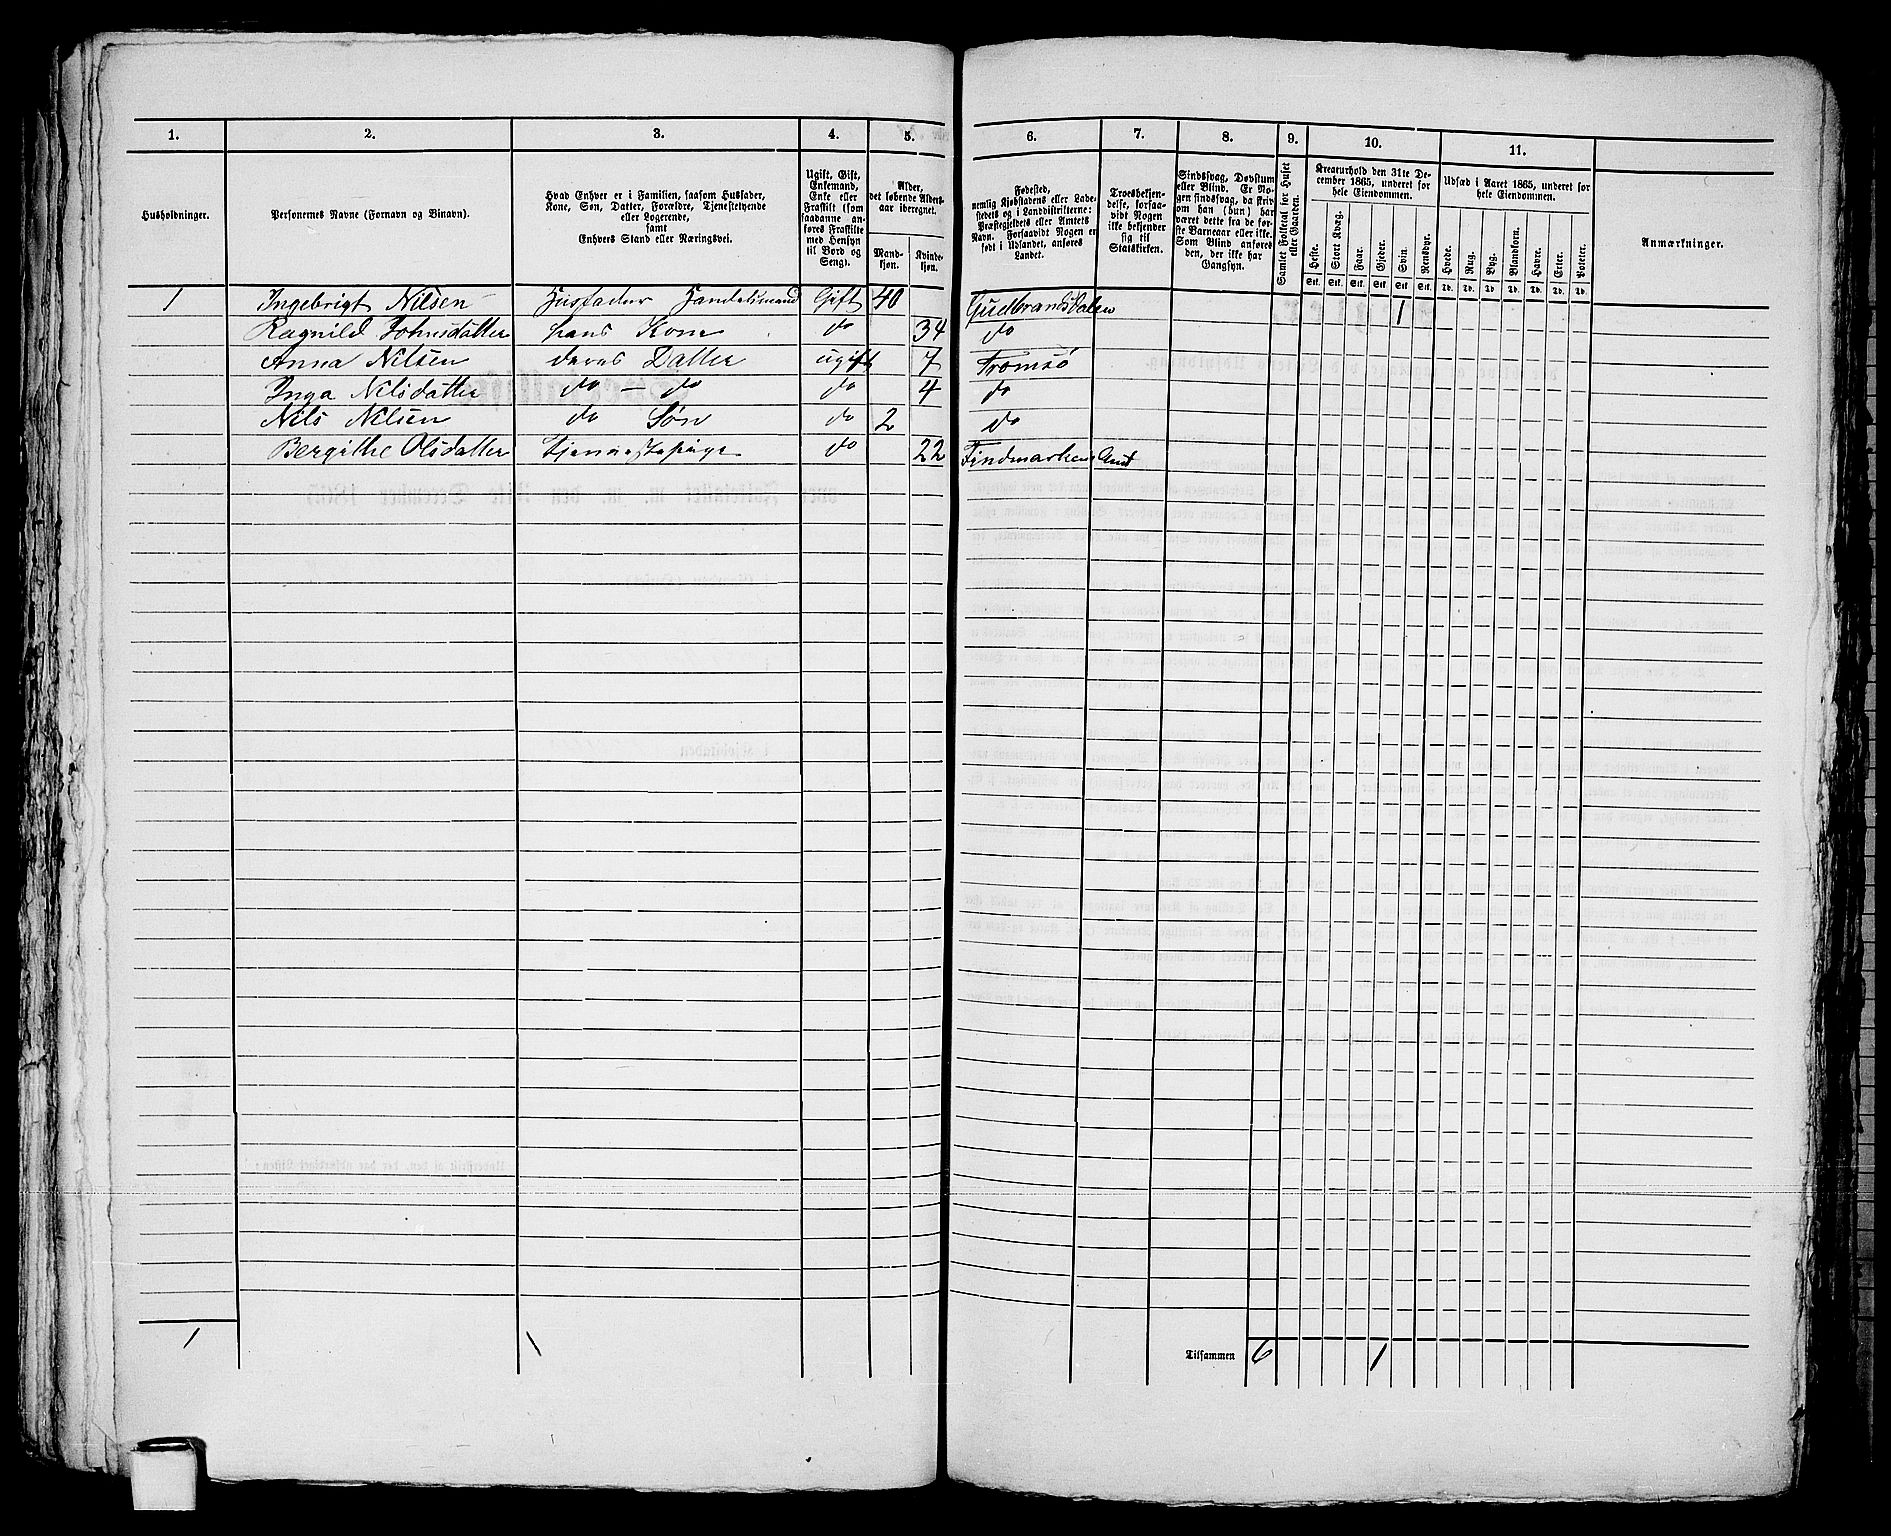 1. 2. 3. 4. 5. 6. 7. 8. 9. 10. 11.
Husholdninger.
Personernes Navne (Fornavn og Binavn).
Hvad Enhver er i Familien, saasom Husfader,
Kone, Søn, Datter, Forældre, Tjenestetyende
eller Logerende,
samt
Enhvers Stand eller Næringsvei.
Ugift, Gift,
Enkemand,
Enke eller
Fraskilt (som
saadanne an-
føres Fraskilte
med Hensyn
til Bord og
Seng).
Alder,
det løbende Alders-
aar iberegnet.
Mand-
kjøn.
Kvinde-
kjøn.
Fødested,
nemlig Kjøbstadens eller Lade-
stedets og i Landdistrikterne:
Præstegjeldets eller Amtets
Navn. Forsaavidt Nogen er
født i Udlandet, anføres
Landet.
Troesbekjen-
delse, forsaa-
vidt Nogen
ikke bekjender
sig til
Statskirken.
Sindssvag, Døvstum
eller Blind. Er No-
gen sindssvag, da skriv
som han (hun) har
været dette fra de før-
ste Barneaar eller ikke.
Som Blind anføres
den, der ikke har
Gangsyn.
Samlet Folketal for Huset
eller Gaarden.
Kreaturhold den 31te De-
cember 1865, underet for
hele Eiendommen.
Heste. Stort Kvæg. Faar. Gjeder. Svin. Rensdyr.
Stk. Stk. Stk. Stk. Stk. Stk.
Udsæd i Aaret 1865, underet for
hele Eiendommen.
Hvede. Rug. Byg. Blandkorn. Havre. Erter. Poteter.
Td. Td. Td. Td. Td. Td. Td.
Anmærkninger.
1 Ingebrigt Nilsen Husfader Handelsmand Gift 40 Gudbrandsdalen 1
Ragnild Johnsdatter hans Kone do 34 do
Anna Nilsen deres Datter ugift 7 Tromsø
Inga Nilsdatter do do do 4 do
Nils Nilsen do Søn do 2 do
Bergithe Olsdatter Tjenestepige do 22 Findmarkens Amt
1 1 Tilsammen 6 1